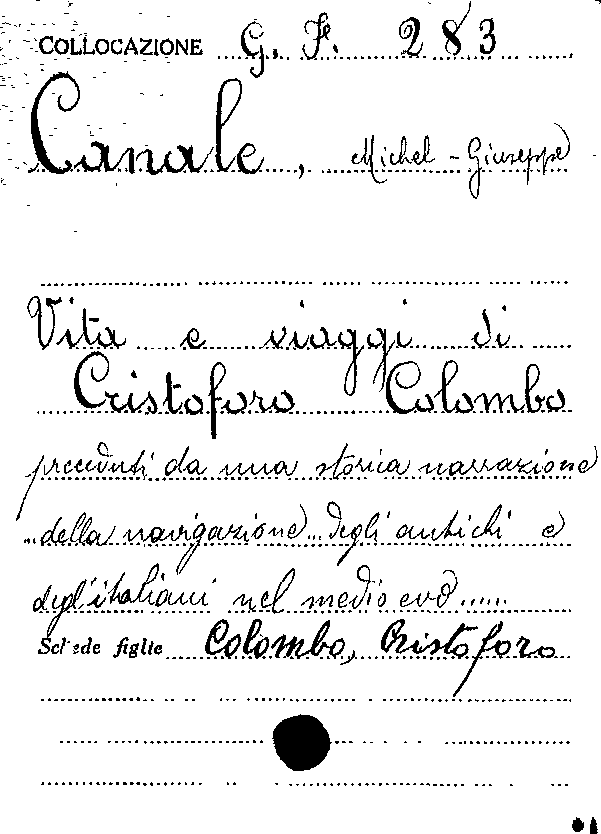 COLLOCAZIONE G. F. 283
Canale, Michel-Giuseppe
Vita e viaggi di
Cristoforo Colombo
preceduti da una storica narrazione
della navigazione degli antichi e
degl'italiani nel medio evo......
Schede figlie Colombo, Cristoforo